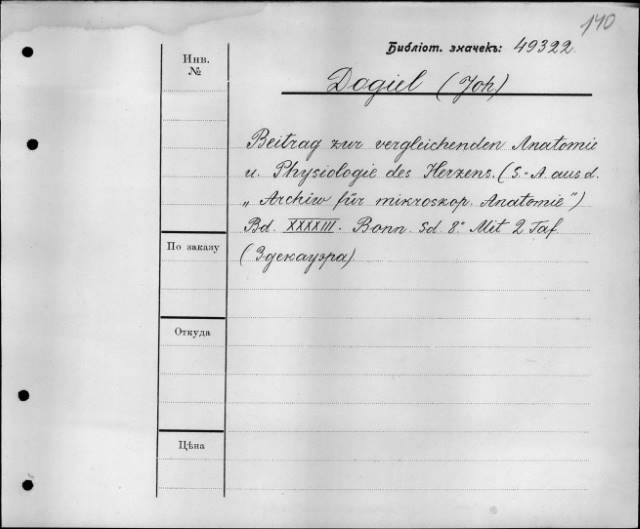 140
Библіот. значекъ: 49322.
Инв.
№
Dogiel (Joh)
Beitrag zur vergleichenden Anatomie
u. Physiologie des Herzens. (S.-A. aus d.
„Archiv für mikroskop. Anatomie")
Bd. XXXXIII. Bonn. Sd 8.° Mit 2 Taf
По заказу
(Здекауэра)
Откуда
Цѣна